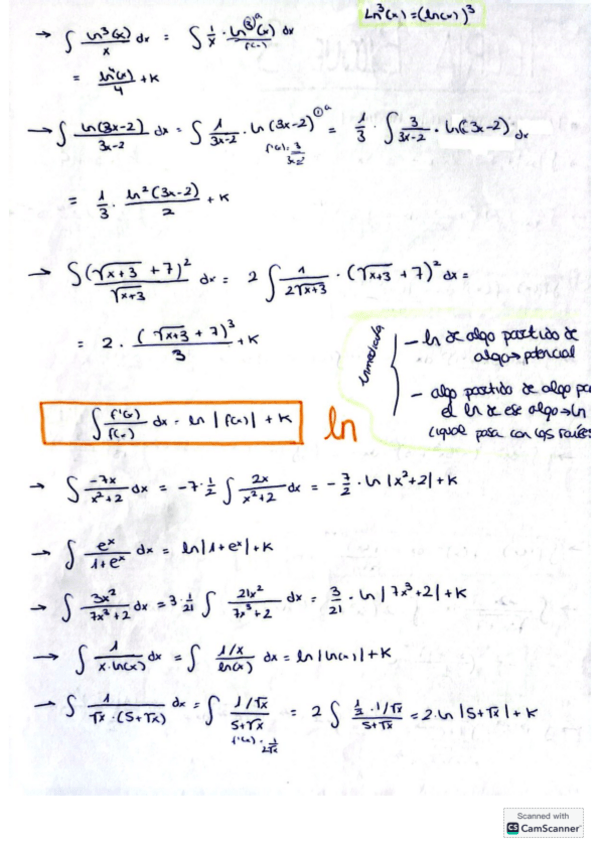 Ln³(x) = (ln(x))³
→ ∫ ln³(x)/x dx = ∫ 1/x · ln³(x) dx
= ln⁴(x)/4 + K
→ ∫ ln(3x-2)/(3x-2) dx = ∫ 1/(3x-2) · ln(3x-2)^① = 1/3 · ∫ 3/(3x-2) · ln(3x-2) dx
f'(x) = 3/(3x-2)
= 1/3 · ln²(3x-2)/2 + K
→ ∫ (√(x+3) + 7)²/√(x+3) dx = 2 ∫ 1/(2√(x+3)) · (√(x+3) + 7)² dx =
= 2 · (√(x+3) + 7)³/3 + K
inmediata
- ln de algo partido de
algo → potencial
- algo partido de algo
el ln de ese algo → ln
(igual pasa con las raíces
∫ f'(x)/f(x) dx = ln |f(x)| + K
ln
→ ∫ -7x/(x²+2) dx = -7 · 1/2 ∫ 2x/(x²+2) dx = -7/2 · ln |x²+2| + K
→ ∫ eˣ/(1+eˣ) dx = ln |1+eˣ| + K
→ ∫ 3x²/(7x³+2) dx = 3 · 1/21 ∫ 21x²/(7x³+2) dx = 3/21 · ln |7x³+2| + K
→ ∫ 1/(x·ln(x)) dx = ∫ (1/x)/ln(x) dx = ln |ln(x)| + K
→ ∫ 1/(√x · (5+√x)) dx = ∫ (1/√x)/(5+√x) = 2 ∫ (1/2 · 1/√x)/(5+√x) = 2 · ln |5+√x| + K
f'(x) = 1/(2√x)
Scanned with
CS CamScanner